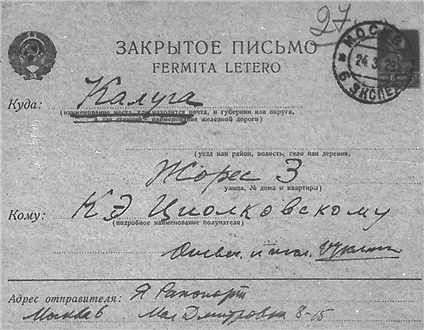 27
МОСКВА
24.3.29
6 ЭКСПЕД
ЗАКРЫТОЕ ПИСЬМО
FERMITA LETERO
Куда: Калуга
(наименование места, где находится почта, и губернии или округа,
а для станций, наименование железной дороги)
(уезд или район, волость, село или деревня,
Жорес 3
улица, № дома и квартиры)
Кому: К Э Циолковскому
(подробное наименование получателя)
Адрес отправителя: Я Рапопорт
Москва 6 Мал Дмитровка 8-15